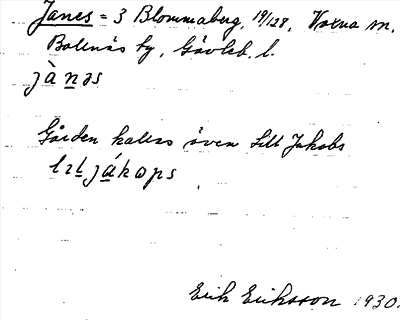 Janes = 3 Blommaberg, 19/128, Voxna sn.
Bollnäs tg, Gävleb. l.
jànəs
Gården kallas även Lill Jakobs
lɪl jákɒps
Erik Eriksson 1930.